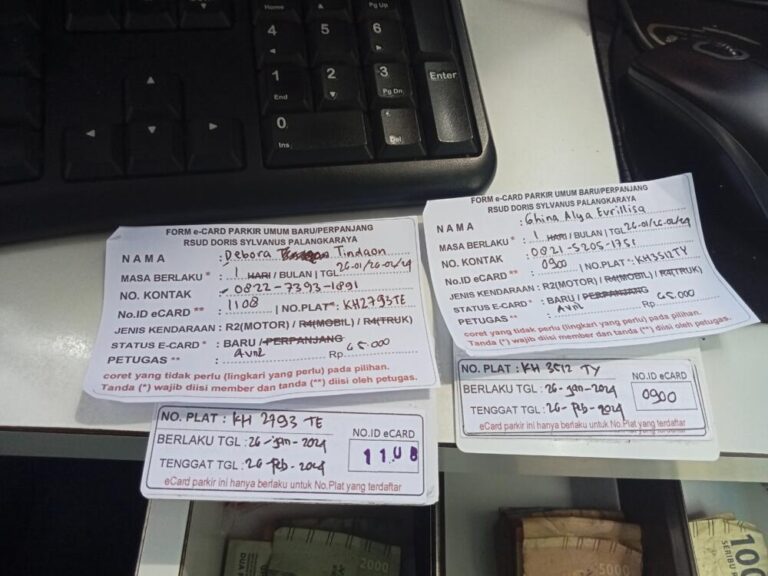 Home
Pg Up
4
5
6
1
End
2
3
Pg Dn
Enter
0
Ins
Del
FORM e-CARD PARKIR UMUM BARU/PERPANJANG
RSUD DORIS SYLVANUS PALANGKARAYA
NAMA : Debora Tindaon
MASA BERLAKU * : 1 HARI / BULAN | TGL 26-01/26-02/24
NO. KONTAK : 0822-7393-1891
No.ID eCARD ** : 1108 | NO.PLAT* : KH2793TE
JENIS KENDARAAN : R2(MOTOR) / R4(MOBIL) / R4(TRUK)
STATUS E-CARD * : BARU / PERPANJANG
PETUGAS ** : Avril Rp. 65.000
coret yang tidak perlu (lingkari yang perlu) pada pilihan.
Tanda (*) wajib diisi member dan tanda (**) diisi oleh petugas.
NO. PLAT : KH 2793 TE
BERLAKU TGL : 26-Jan-2024
TENGGAT TGL : 26-Feb-2024
NO.ID eCARD
1108
eCard parkir ini hanya berlaku untuk No.Plat yang terdaftar
FORM e-CARD PARKIR UMUM BARU/PERPANJANG
RSUD DORIS SYLVANUS PALANGKARAYA
NAMA : Ghina Alya Evrillisa
MASA BERLAKU * : 1 HARI / BULAN | TGL 26-01/26-02/24
NO. KONTAK : 0821-5205-1751
No.ID eCARD ** : 0900 | NO.PLAT* : KH3512TY
JENIS KENDARAAN : R2(MOTOR) / R4(MOBIL) / R4(TRUK)
STATUS E-CARD * : BARU / PERPANJANG
PETUGAS ** : Avril Rp. 65.000
coret yang tidak perlu (lingkari yang perlu) pada pilihan.
Tanda (*) wajib diisi member dan tanda (**) diisi oleh petugas.
NO. PLAT : KH 3512 TY
BERLAKU TGL : 26-Jan-2024
TENGGAT TGL : 26-Feb-2024
NO.ID eCARD
0900
eCard parkir ini hanya berlaku untuk No.Plat yang terdaftar
DUA
2000
5000
100
SERIBU